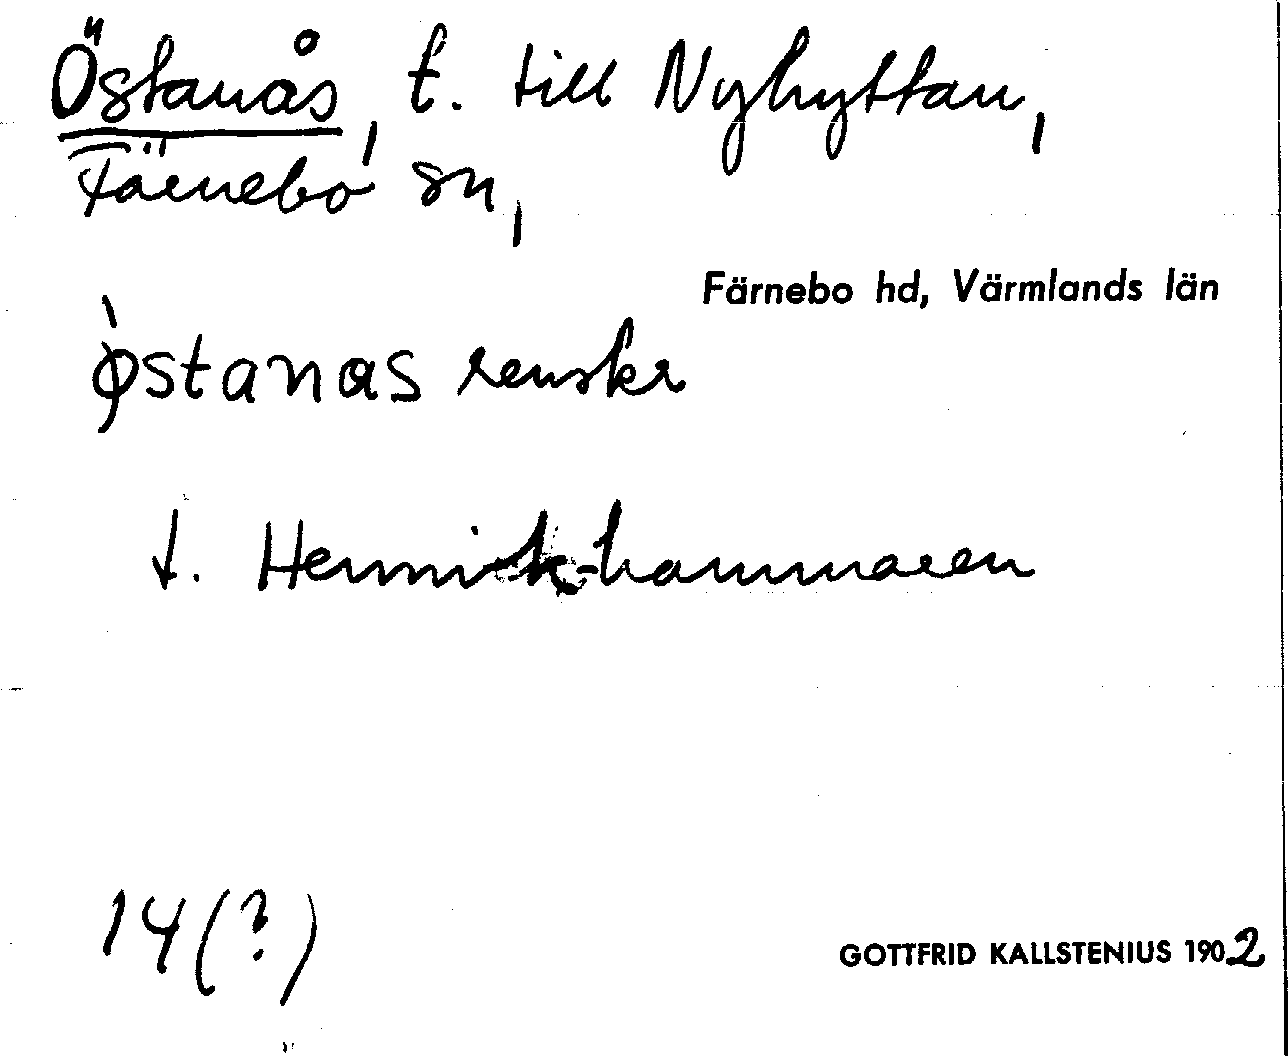 Östanås, t. till Nyhyttan,
Färnebo sn,
Färnebo hd, Värmlands län
østanas renskr
t. Hennickehammaren
14(?)
GOTTFRID KALLSTENIUS 1902